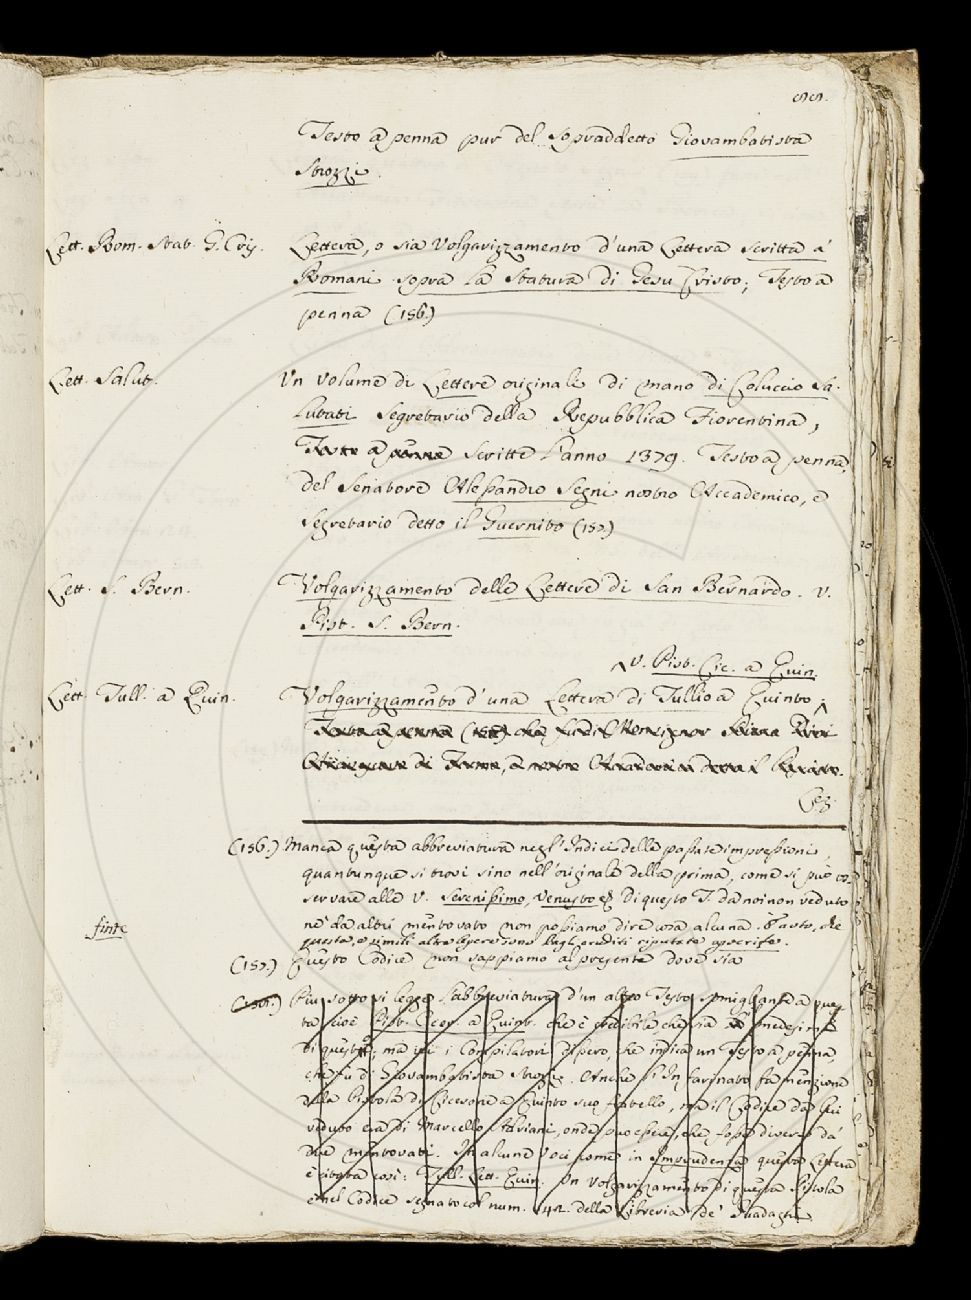 99.
Testo a penna pur del sopraddetto Giovambatista
Strozzi.
Lett. Rom. Stat. G. Cris. Lettera, o sia Volgarizzamento d'una Lettera scritta a'
Romani sopra la statura di Gesu Cristo; Testo a
penna (156.)
Lett. Salut. Un volume di Lettere originale di mano di Coluccio Sa-
lutati Segretario della Repubblica Fiorentina,
scritte l'anno 1379. Testo a penna
del Senatore Alessandro Segni nostro Accademico, e
Segretario detto il Guernito (157)
Lett. S. Bern. Volgarizzamento delle Lettere di San Bernardo. V.
Pist. S. Bern.
v. Pist. Cic. a Quin.
Lett. Tull. a Quin. Volgarizzamento d'una Lettera di Tullio a Quinto
di
(156.) Manca questa abbreviatura negl'Indici delle passate impressioni,
quantunque si trovi sino nell'originale della prima, come si può os-
servare alle V. Serenissimo, Venusto Di questo T. da noi non veduto
nè da altri mentovato non possiamo dire cosa alcuna. che
questa, e simili altre dagli eruditi riputate apocrife.
finte
(157.) Questo Codice non sappiamo al presente dove sia
Piu sotto si legge l'abbreviatura d'un altro Testo somigliante a que-
sta cioè Pist. Cicer. a Quint. che è credibile che sia medesimo
di questo; ma i Compilatori che indica un Testo a penna,
che fu di Giovambatista Strozzi. Anche l'Infarinato fa menzione
della Pistola di Cicerone a Quinto suo fratello, ma il Codice da lui
veduto era di Marcello Adriani, onde può essere, che fosse diverso da'
due mentovati. In alcune voci come in Imprudenza questa Lettera
è citata così: Tull. Lett. Quin. Un volgarizzamento di questa Pistola
è nel Codice segnato col num. 42. della Libreria de' Guadagni